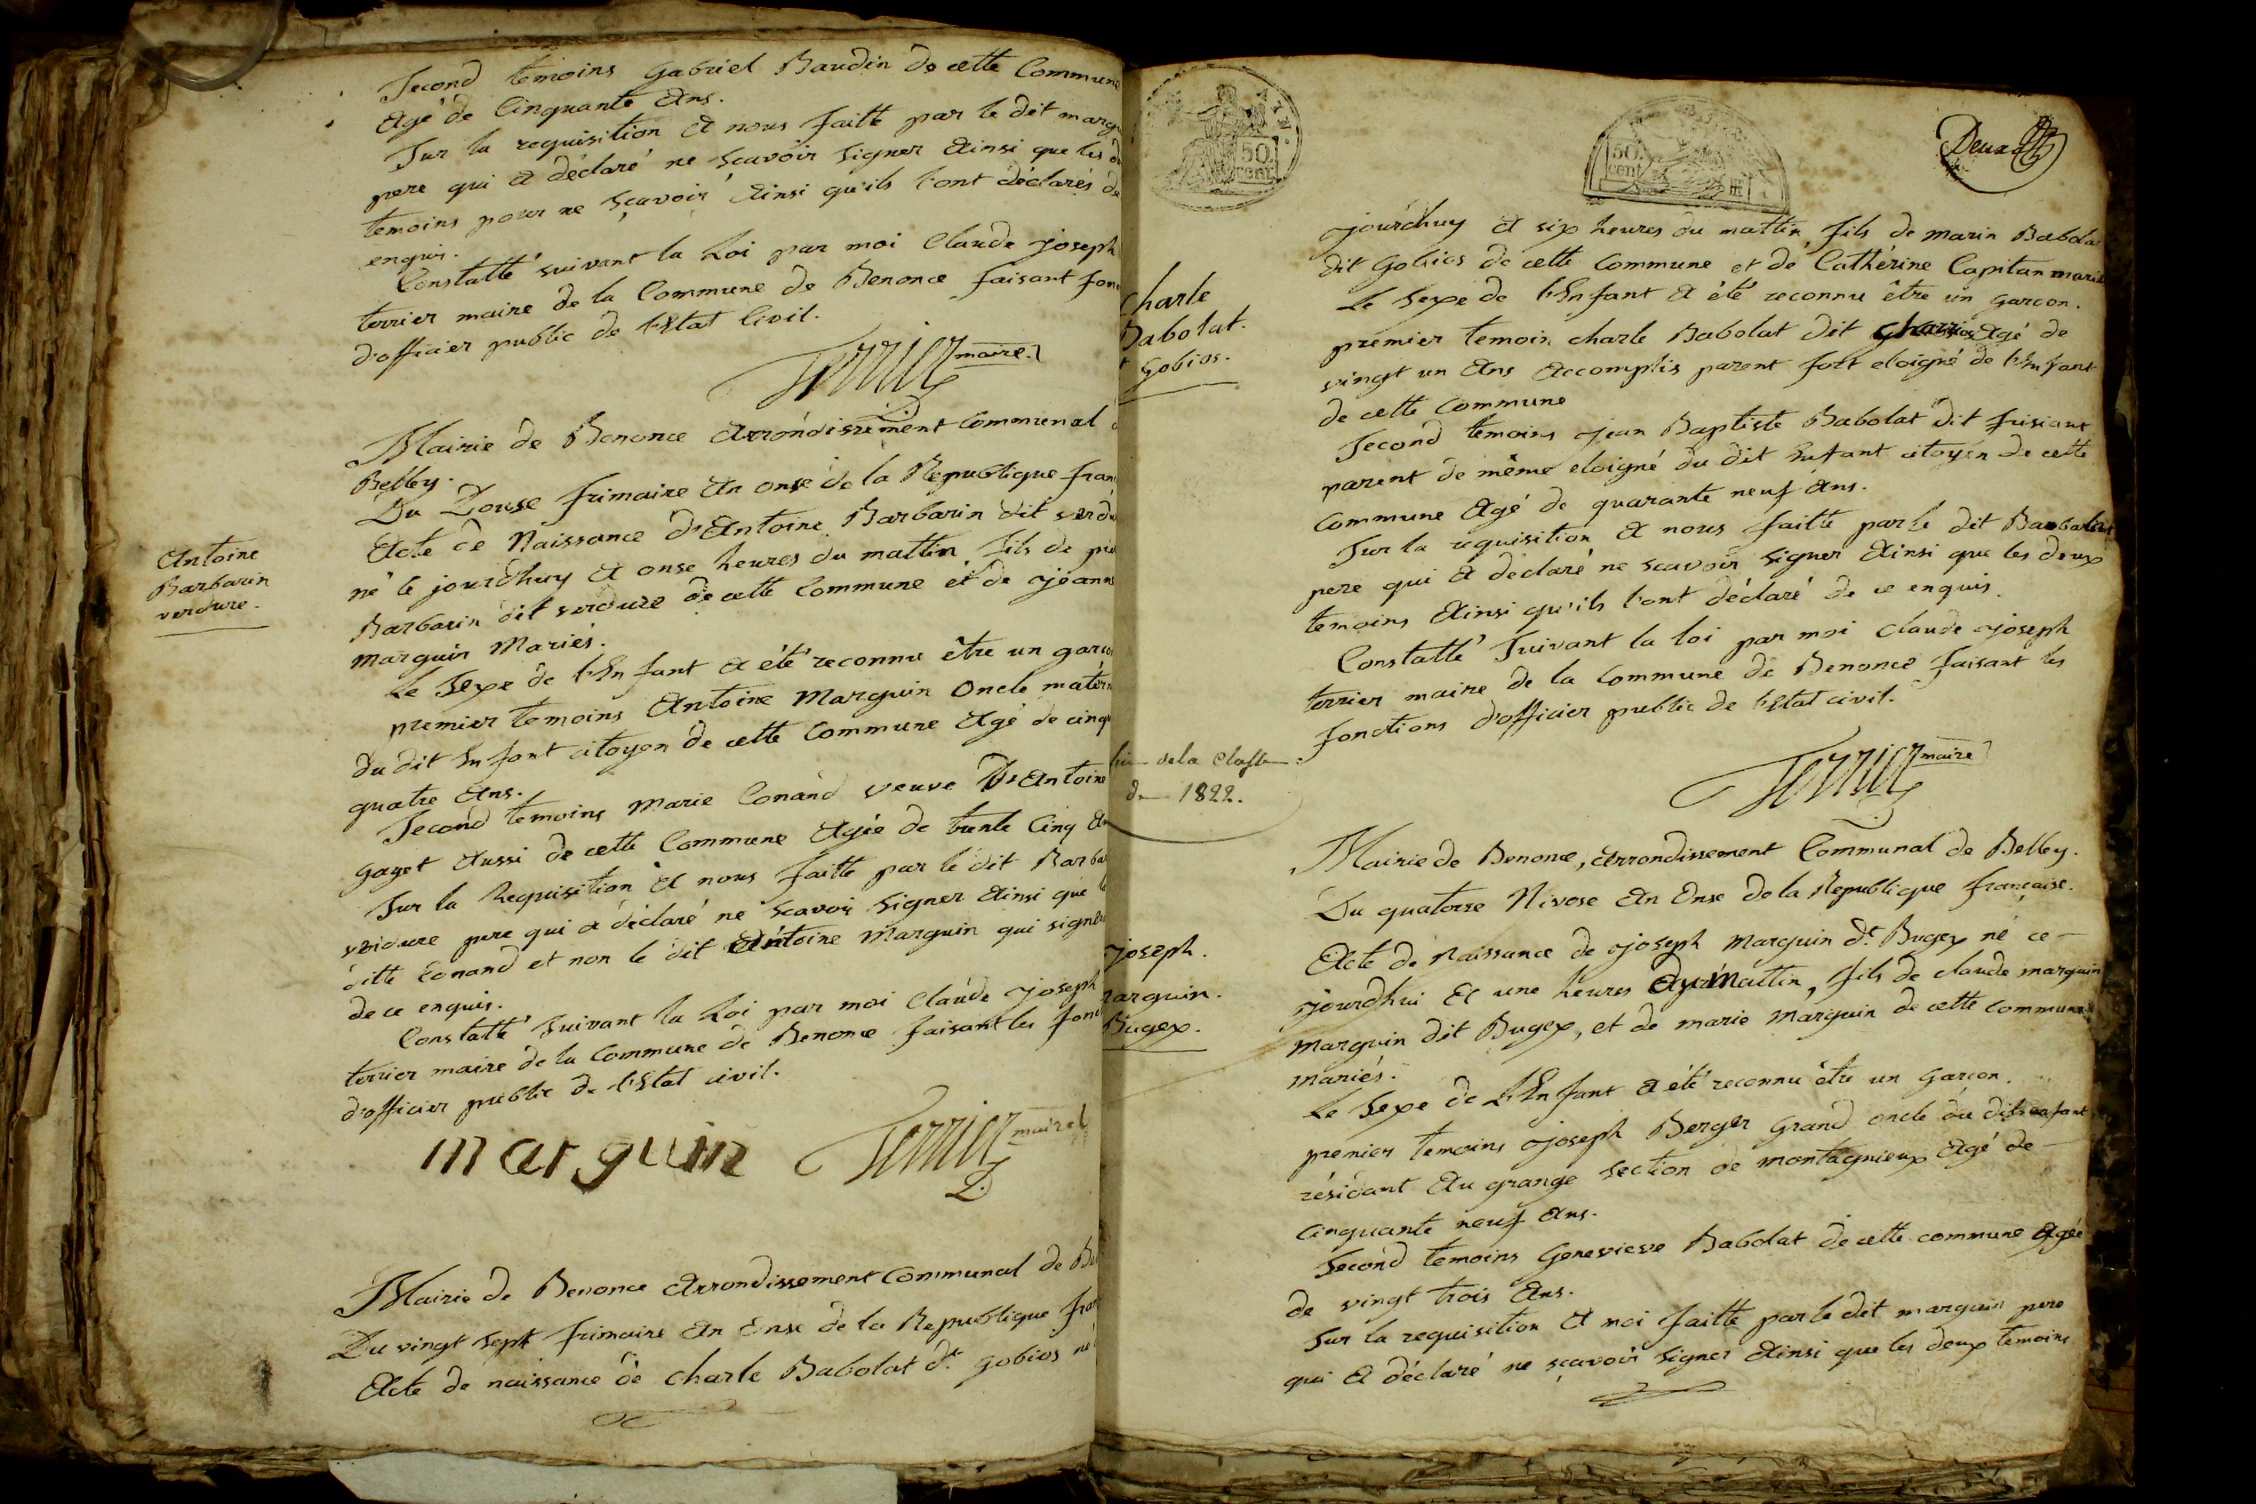 Second temoins Gabriel Baudin de cette Commune
Agé de Cinquante Ans.
Sur la requisition A nous faitte par le dit margu
pere qui A déclaré ne sçavoir signer Ainsi que les d
temoins pour ne sçavoir Ainsi qu'ils l'ont déclarés de
enquis.
Constatté suivant la Loi par moi Claude joseph
terrier maire de la Commune de Benonce faisant fon
d'officier public de l'Etat Civil.
Terrier maire
Mairie de Benonce Arrondissement Communal
Belley.
Du Douse frimaire An onse de la Republique fran
Acte de Naissance d'Antoine Barbarin dit verdu
né le jourdhuy A onse heures du mattin fils de pie
Barbarin dit verdure de cette Commune et de jeanne
marguin Mariés.
Le Sexe de l'Enfant A été reconnu être un garco
premier temoins Antoine Marguin Oncle matern
du dit Enfant citoyen de cette Commune Agé de cinqu
quatre Ans.
Second temoins Marie Conand veuve D'Antoine
gayet Aussi de cette Commune Agée de trente Cinq An
Sur la Requisition A nous faitte par le dit Barba
verdure pere qui a déclaré ne sçavoir signer Ainsi que l
ditte Conand et non le dit Antoine Marguin qui signe
de ce enquis.
Constatté suivant la Loi par moi Claude joseph
terrier maire de la Commune de Benonce faisant les fonc
d'officier public de l'Etat civil.
marguin Terrier maire
Mairie de Benonce Arrondissement Communal de Be
Du vingt sept frimaire An Onse de la Republique fran
Acte de naissance de charle Babolat dt gobios né
Antoine
Barbarin
verdure.
50
cent
50.
cent
Deux
jourdhuy A six heures du mattin, fils de marin Babola
dit Gobios de cette Commune et de Cathérine Capitan marie
Le Sexe de l'Enfant A été reconnu être un garcon.
premier temoin charle Babolat dit Agé de
vingt un Ans Accomplis parent fort eloigné de l'Enfant
de cette Commune
Second temoins jean Baptiste Babolat dit
parent de même eloigné du dit Enfant citoyen de cette
Commune Agé de quarante neuf Ans.
Sur la requisition A nous faitte par le dit
pere qui A déclaré ne scavoir signer Ainsi que les deux
temoins Ainsi qu'ils l'ont déclaré de ce enquis.
Constatté Suivant la loi par moi Claude joseph
terrier maire de la Commune de Benonce faisant les
fonctions d'officier public de l'Etat civil.
Terrier maire
Mairie de Benonce, Arrondissement Communal de Belley.
Du quatorse Nivose An Onse de la Republique française.
Acte de Naissance de joseph Marguin dt Bugex né ce
jourdhui A une heures du Mattin, fils de claude marguin
marguin dit Bugex, et de marie Marguin de cette commune
mariés.
Le Sexe de L'Enfant A été reconnu être un Garcon.
premier temoins joseph Berger Grand oncle du dit enfant
résidant Au grange Section de montagnieux Agé de
Cinquante neuf Ans.
Second temoins Genevieve Babolat de cette commune Agée
de vingt trois Ans.
Sur la requisition A moi faitte par le dit marguin pere
qui A déclaré ne sçavoir signer Ainsi que les deux temoins
charle
Babolat.
Gobios.
de la Classe
de 1822.
joseph.
marguin.
Bugex.